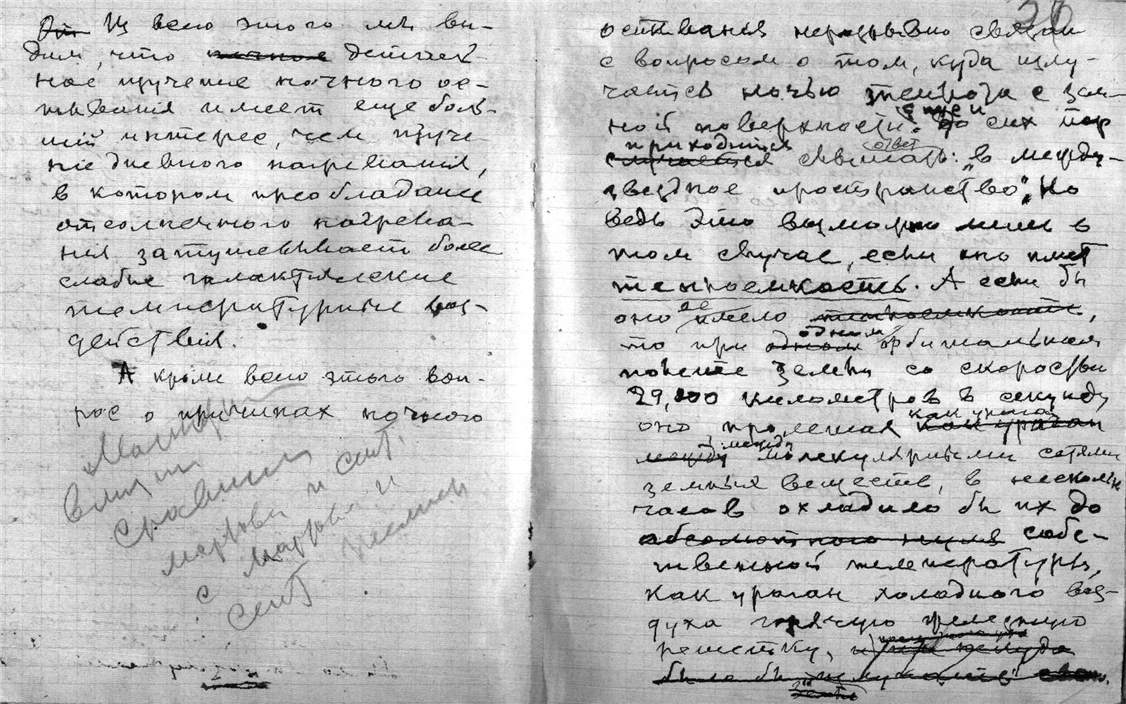 Из всего этого мы ви-
дим, что ночное детал-
ное изучение ночного ос-
тывания имеет еще боль-
ший интерес, чем изуче-
ние дневного нагревания,
в котором преобладание
отсолнечного нагрева-
ния затушевывает более
слабые галактические
температурные воз-
действия.
А кроме всего этого воп-
рос о причинах ночного
сравнит
мартовы и сент.
с мартовы и
сент
26
остывания неразрывно связан
с вопросом о том, куда излу-
чается ночью теплота с зем-
ной поверхности. До сих пор
приходится ответ
слышать: "в между-
звездное пространство". Но
ведь это возможно лишь в
том случае, если оно имеет
теплоемкость. А если бы
оно ее имело теплоемкость,
одном
то при одном орбитальном
полете земли со скоростью
29,000 километров в секунду
как ураган
оно пролетая как ураган
между
между молекулярными сетями
земных веществ, в несколько
часов охладило бы их до
абсолютного нуля собс-
твенной температуры,
как ураган холодного воз-
духа горячую железную
решетку,
было бы